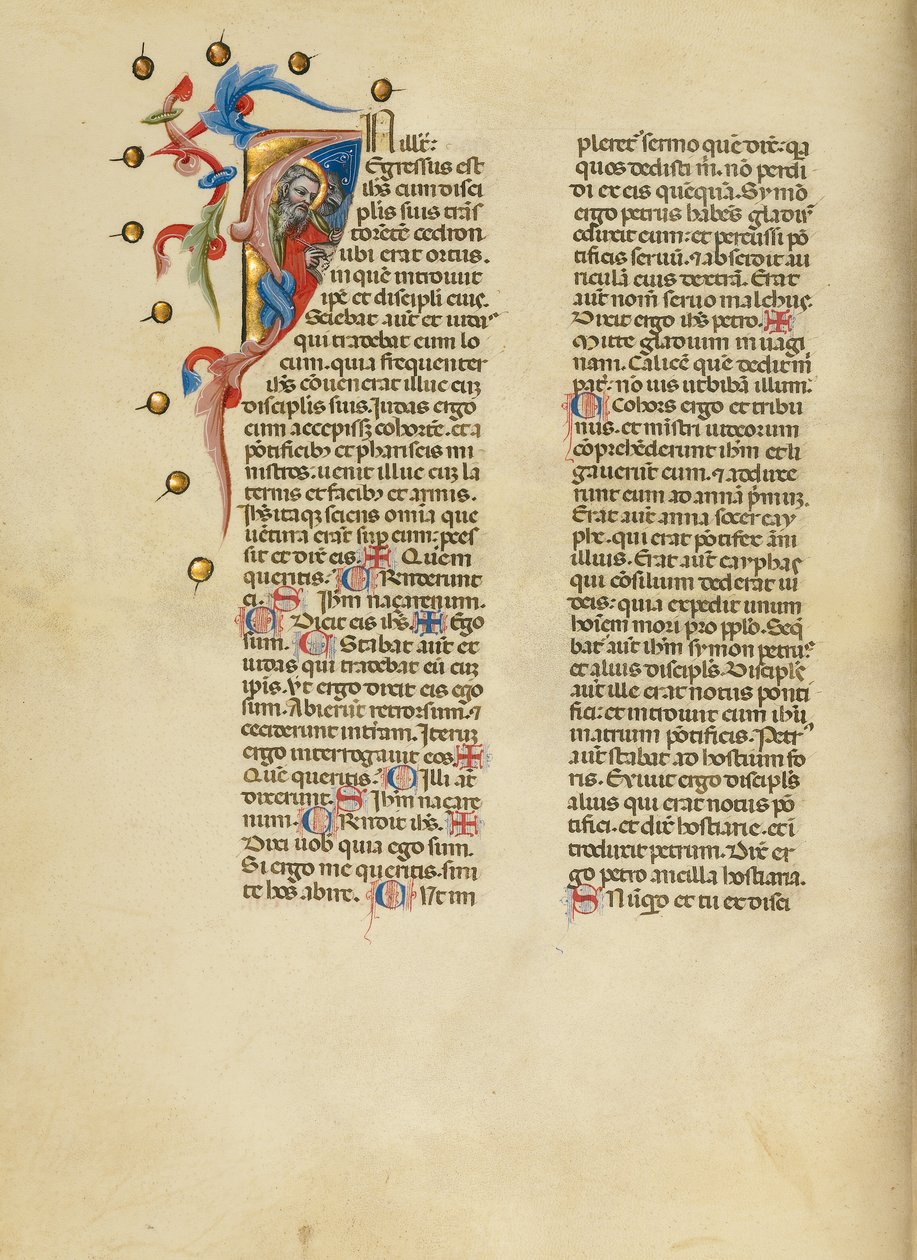 N ill̄r:
Egressus est
ih̄s cum disci
plis suis trās
torētē cedron
ubi erat ortus.
in quē introiuit
ip̄e et discipli eius.
Sciebat aūt et iudas
qui tradebat eum lo
cum. quia frequenter
ih̄s cōuenerat illuc cuȝ
disciplis suis. Iudas ergo
cum accepissȝ cohortē. et a
pōtificibȝ et phariseis mi
nistros: uenit illuc cuȝ la
ternis et facibȝ et armis.
Ih̄s itaqȝ sciens omīa que
uētura erāt sup eum: pces
sit et dix̄ eis. ✠ Quem
queritis: C Rn̄derunt
ei. S Ih̄m naçarenum.
C Dicit eis ih̄s. ✠ Ego
sum. C Stabat aūt et
iudas qui tradebat eū cuȝ
ip̄is. Vt ergo dixit eis ego
sum. Abierūt retrorsum. ⁊
ceciderunt in tr̄am. Iteruȝ
ergo interrogauit eos. ✠
Quē queritis: C Illi at̄
dixerunt. S Ih̄m naçare
num. C Rn̄dit ih̄s. ✠
Dixi uob̄ quia ego sum.
Si ergo me queritis. sini
te hos abire. C Vt im
pleret̄ sermo quē dix̄: qa
quos dedisti m̄. nō perdi
di ex eis quēquā. Symō
ergo petrus habēs gladiū
eduxit eum: et percussi pō
tificis seruū. ⁊ abscidit au
riculā eius dextrā. Erat
aūt nom̄ seruo malchus.
Dixit ergo ih̄s petro. ✠
Mitte gladium in uagi
nam. Calicē quē dedit m̄
pat̄: nō uis ut bibā illum:
C Cohors ergo et tribu
nus. et mīstri iudeorum
cōprehēderunt ih̄m et li
gauerūt eum. ⁊ adduxe
runt eum ad annā p̄muȝ.
Erat aūt anna socer cay
phe. qui erat pōtifex āni
illius. Erat aūt cayphas
qui cōsilium dederat iu
deis: quia expedit unum
hoīem mori pro pplo. Seq̄
bat̄ aūt ih̄m symon petrus
et alius discipls̄. Discipls̄
aūt ille erat notus ponti
fici: et introiuit cum ih̄u
in atrium pōtificis. Petrꝰ
aūt stabat ad hostium fo
ris. Exiuit ergo discipls̄
alius qui erat notus pō
tifici. et dix̄ hostiarie. et ī
troduxit petrum. Dix̄ er
go petro ancilla hostiaria.
S Nūqd et tu ex disci